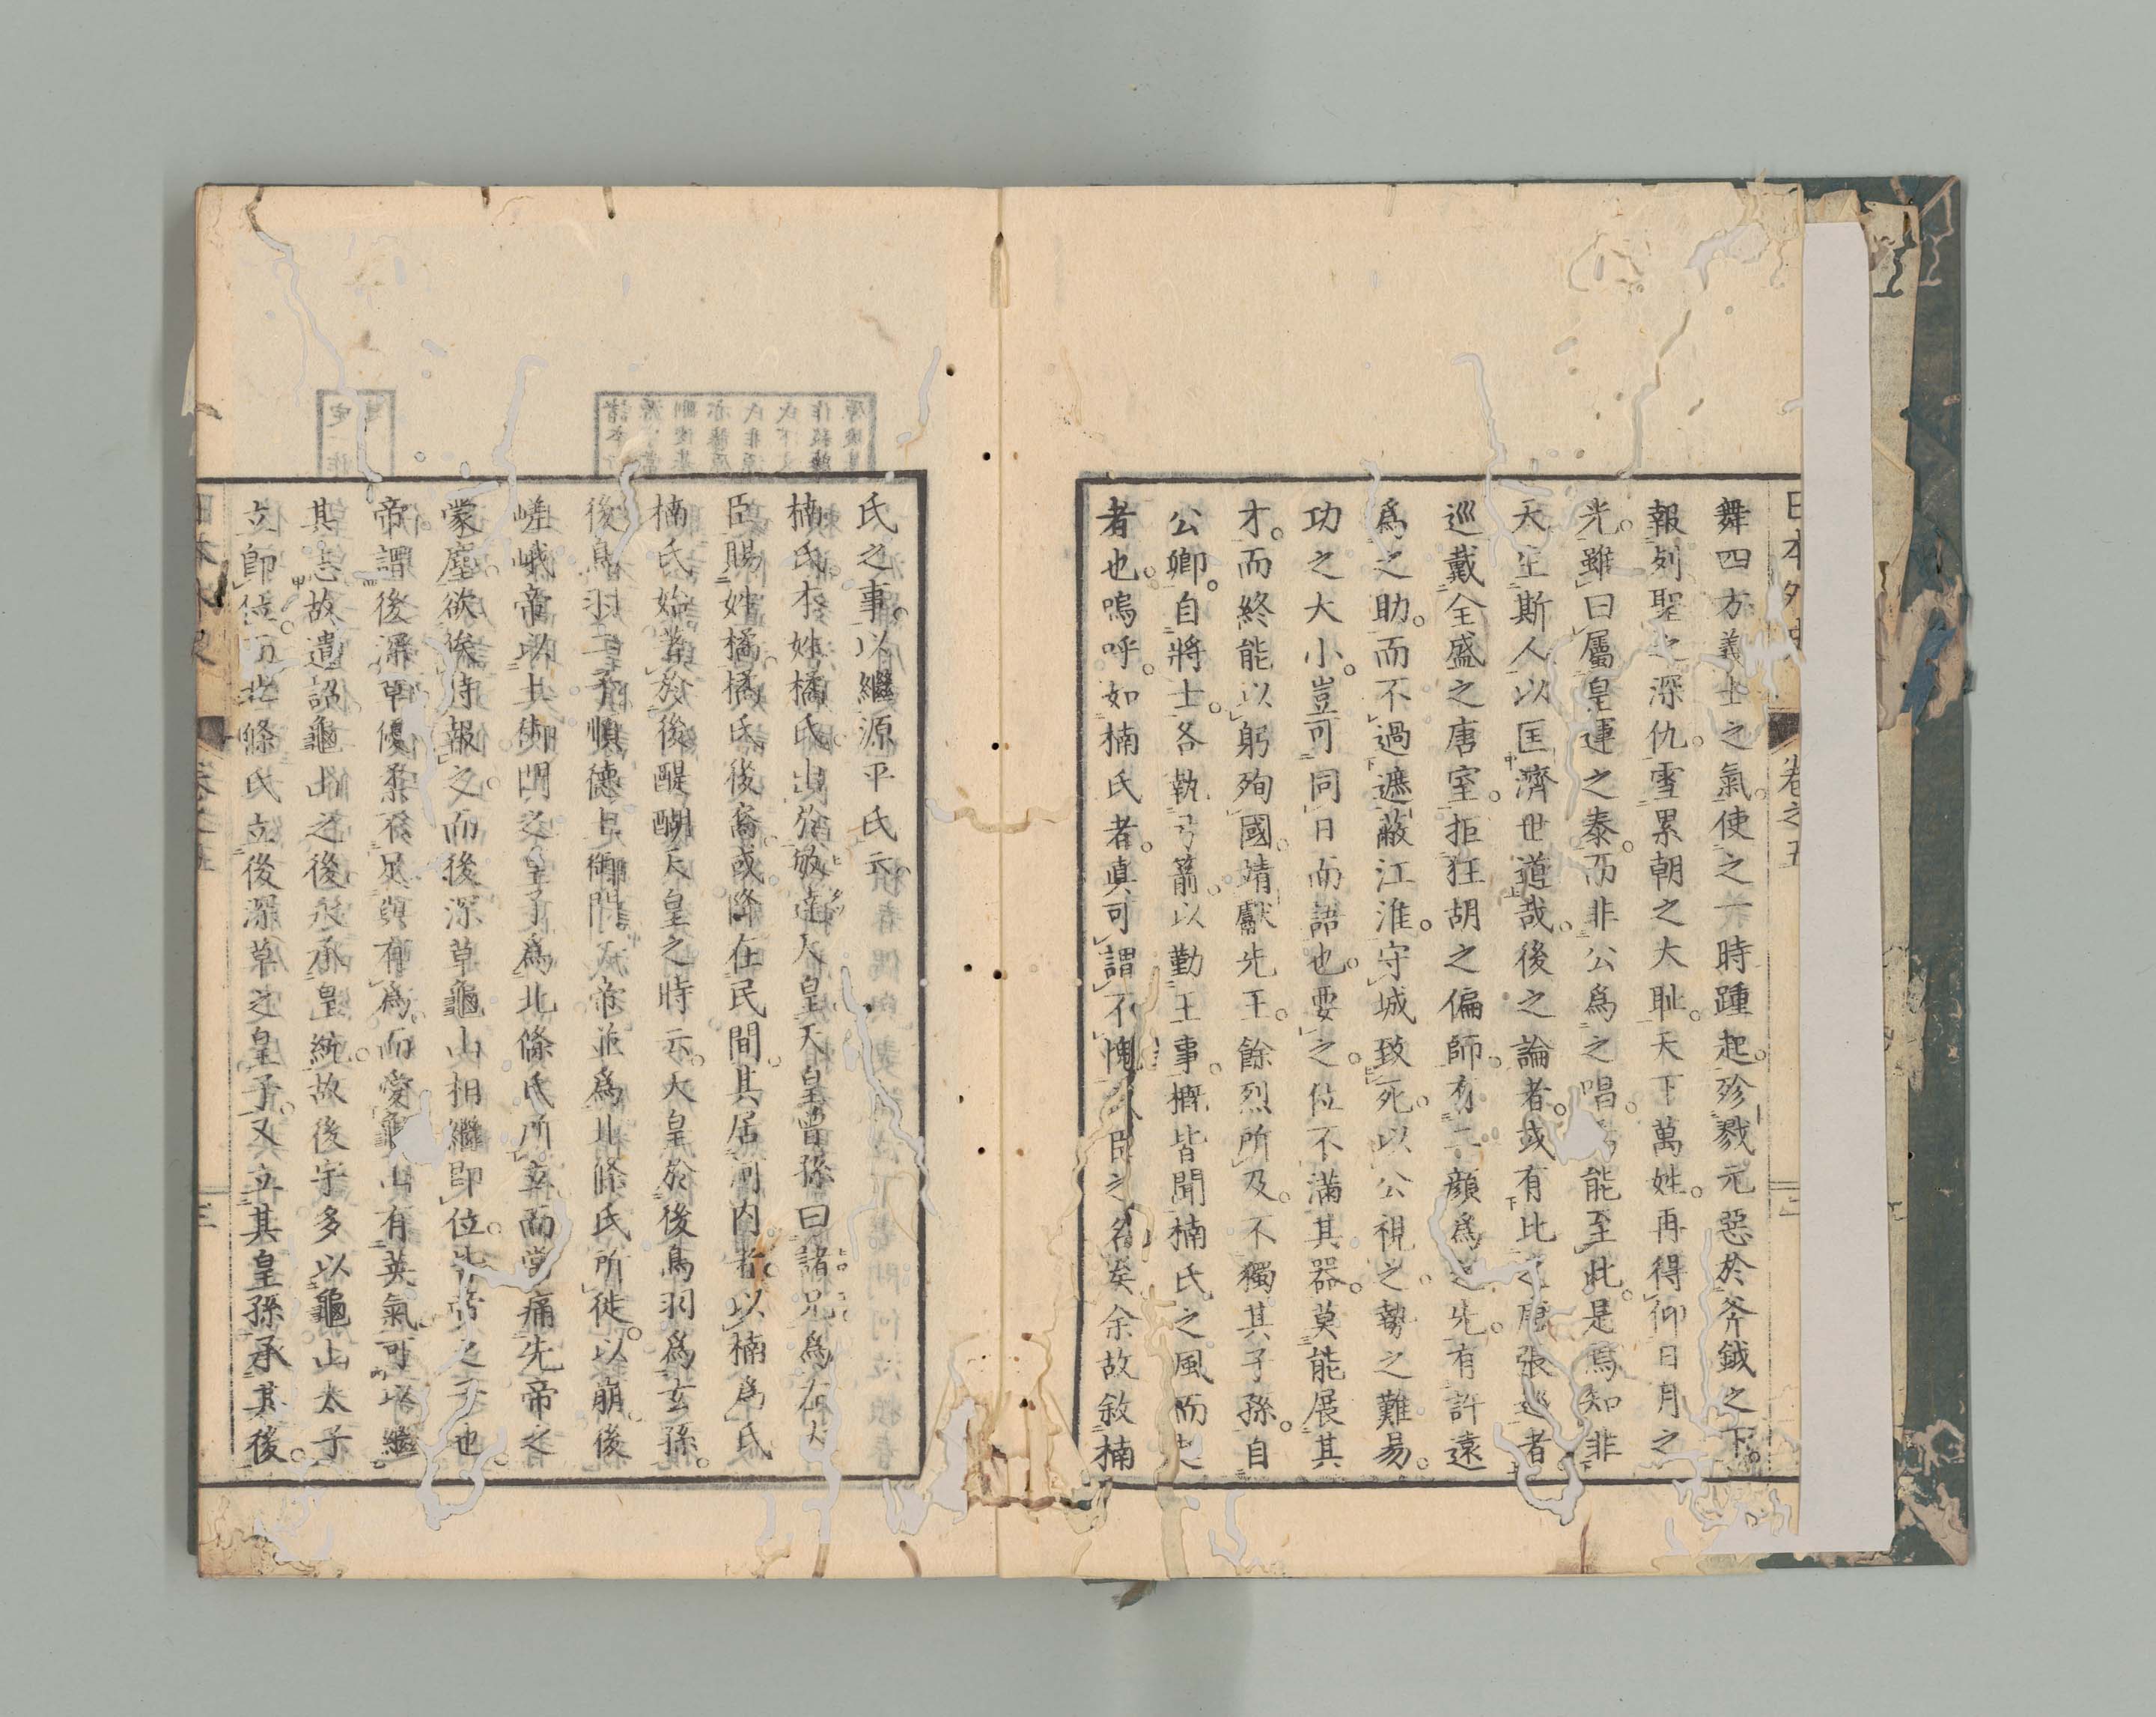 舞四方義士之氣。使之一時踵起。殄戮元惡於斧鉞之下。
報列聖之深仇。雪累朝之大恥。天下萬姓。再得仰日月之
光。雖曰屬皇運之泰。而非公爲之唱。能至此。是焉知非
天生斯人以匡濟世道哉。後之論者。或有比之唐張巡者。
巡戴全盛之唐室。拒狂胡之偏師。有二顏爲之先。有許遠
爲之助。而不過遮蔽江淮。守城致死。以公視之。勢之難易。
功之大小。豈可同日而語也。要之。位不滿其器。莫能展其
才。而終能以躬殉國。靖獻先王。餘烈所及。不獨其子孫。自
公卿。自將士。各執弓箭。以勤王事。概皆聞楠氏之風而起
者也。嗚呼。如楠氏者。眞可謂不愧臣之名矣。余故敘楠
氏之事。以繼源平氏云。
楠氏本姓橘氏。出於敏達天皇。天皇曾孫曰諸兄。爲左大
臣。賜姓橘。橘氏後裔。或降在民間。其居河內者。以楠爲氏。
楠氏始著於後醍醐天皇之時云。天皇於後鳥羽爲玄孫。
後鳥羽二子順德土御門二帝。並爲北條氏所徙。以崩。後
嵯峨帝以土御門之皇子。爲北條氏所立。而常痛先帝之
蒙塵。欲俟時報之。而後深草龜山相繼即位。皆帝之子也。
帝謂後深草優柔不足與有爲。而愛龜山有英氣。可以繼
其志。故遺詔龜山之後永承皇統。故後宇多以龜山太子
立即位。而北條氏立後深草之皇子。又立其皇孫承其後。
日本外史
卷之五